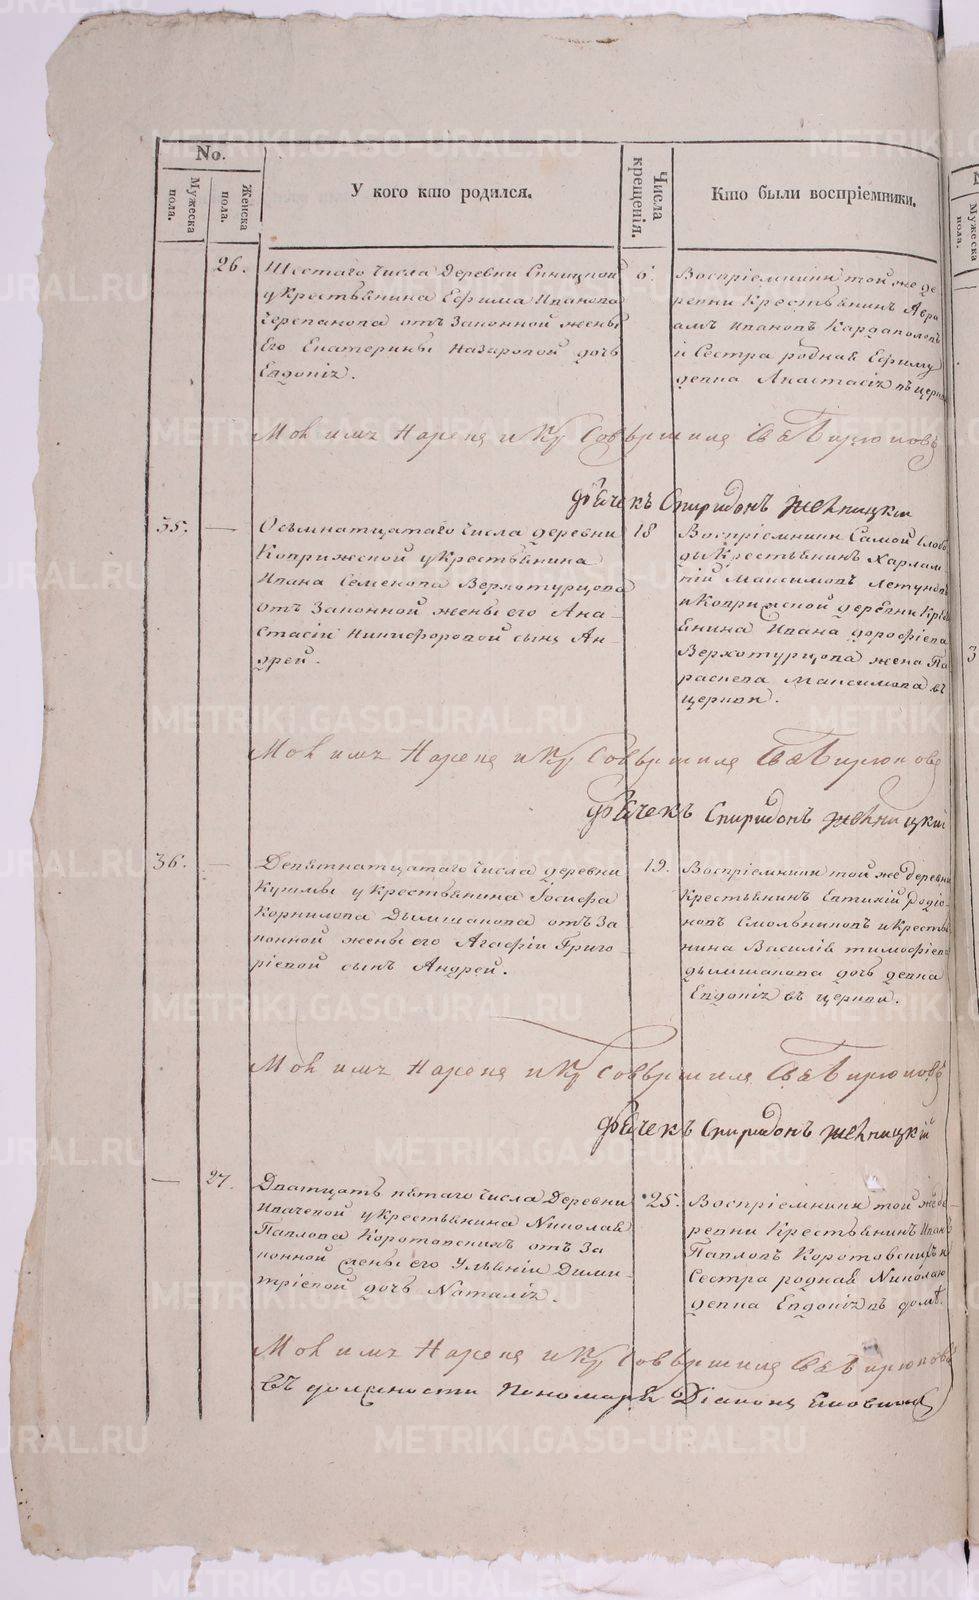 No.
Мужеска пола.
Женска пола.
У кого кто родился.
Числа крещенія.
Кто были воспріемники.
26.
Шестаго числа Деревни Синицкой
у Крестьянина Ефима Иванова
Черепанова отъ Законной жены
Его Екатерины Назаровой дочь
Евдокіѧ.
6.
Воспріемники той же де
ревни Крестьянинъ Авра
амъ Ивановъ Кардаполовъ
и Сестра родная Ефиму
девка Анастасіѧ въ церк
Мол имѧ Нарека и Кр Совершила Свѧ Бирюковъ
дьячекъ Спиридонъ
35.
—
Осьмнатцатаго числа деревни
Коврижской у Крестьянина
Ивана Семенова Верхотурцова
отъ Законной жены его Ана-
стасіи Никифоровой сынъ Ан-
дрей.
18
Воспріемники Самой Слобо
ды Крестьянинъ Харлам
пій Максимовъ Летуновъ
и Коврижской деревни Кресть
янина Ивана дорофіева
Верхотурцова жена Па
расковья Максимова въ
церкви.
Мол имѧ Нарека и Кр Совершила Свѧ Бирюковъ
дьячекъ Спиридонъ
36.
—
Девѧтнатцатаго числа деревни
Кушмы у Крестьянина Іосифа
Корнилова Дымшакова отъ За
конной жены его Агафіи Григо
ріевой сынъ Андрей.
19.
Воспріемники той же деревни
Крестьянинъ Евтихій Родіо
новъ Смольниковъ и Кресть
янина Василія тимофіева
дымшакова дочь девка
Евдокіѧ въ церкви.
Мол имѧ Нарека и Кр Совершила Свѧ Бирюковъ
дьячекъ Спиридонъ
—
27.
Дватцать пѧтаго числа Деревни
Ивачевой у Крестьянина Николая
Павлова Коротовскихъ отъ За
конной жены его Ульяніи Дими-
тріевой дочь Наталіѧ.
25.
Воспріемники той же де
ревни Крестьянинъ Иванъ
Павловъ Коротовскихъ и
Сестра родная Николаю
девка Евдокіѧ въ домѣ.
Мол имѧ Нарека и Кр Совершила Свѧ Бирюковъ
Въ должности Пономаря Діаконъ
METRIKI.GASO-URAL.RU